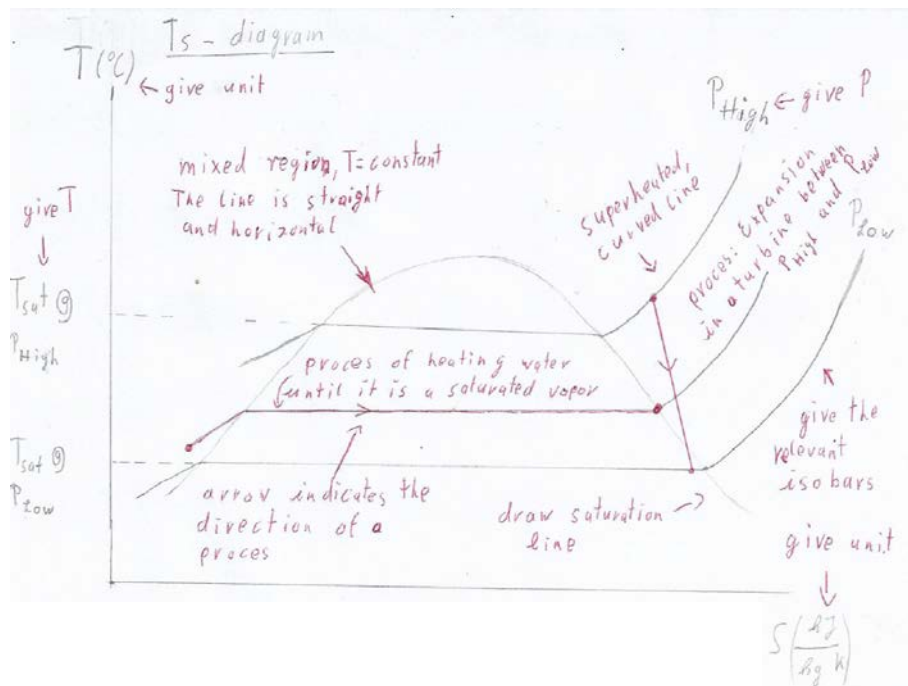 Ts - diagram
T(°C)
← give unit
mixed region, T=constant
The line is straight
and horizontal
P High ← give P
superheated,
curved line
proces: Expansion
in a turbine between
P High and P Low
P Low
give T
Tsat @
P High
proces of heating water
until it is a saturated vapor
Tsat @
P Low
arrow indicates the
direction of a
proces
draw saturation
line
give the
relevant
isobars
give unit
S (kJ/kg K)